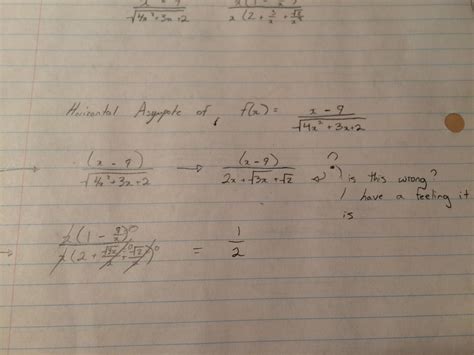 x - 9 / √4x² + 3x + 2    x(1 - / x(2 + 3/x + √2/x
Horizontal Asympote of, f(x) = x - 9 / √4x² + 3x + 2
→ (x - 9) / √4x² + 3x + 2 → (x - 9) / 2x + √3x + √2 ? is this wrong?
I have a feeling it
is
→ x(1 - 9/x)⁰ / x(2 + √3x/x⁰ + √2/x)⁰ = 1/2